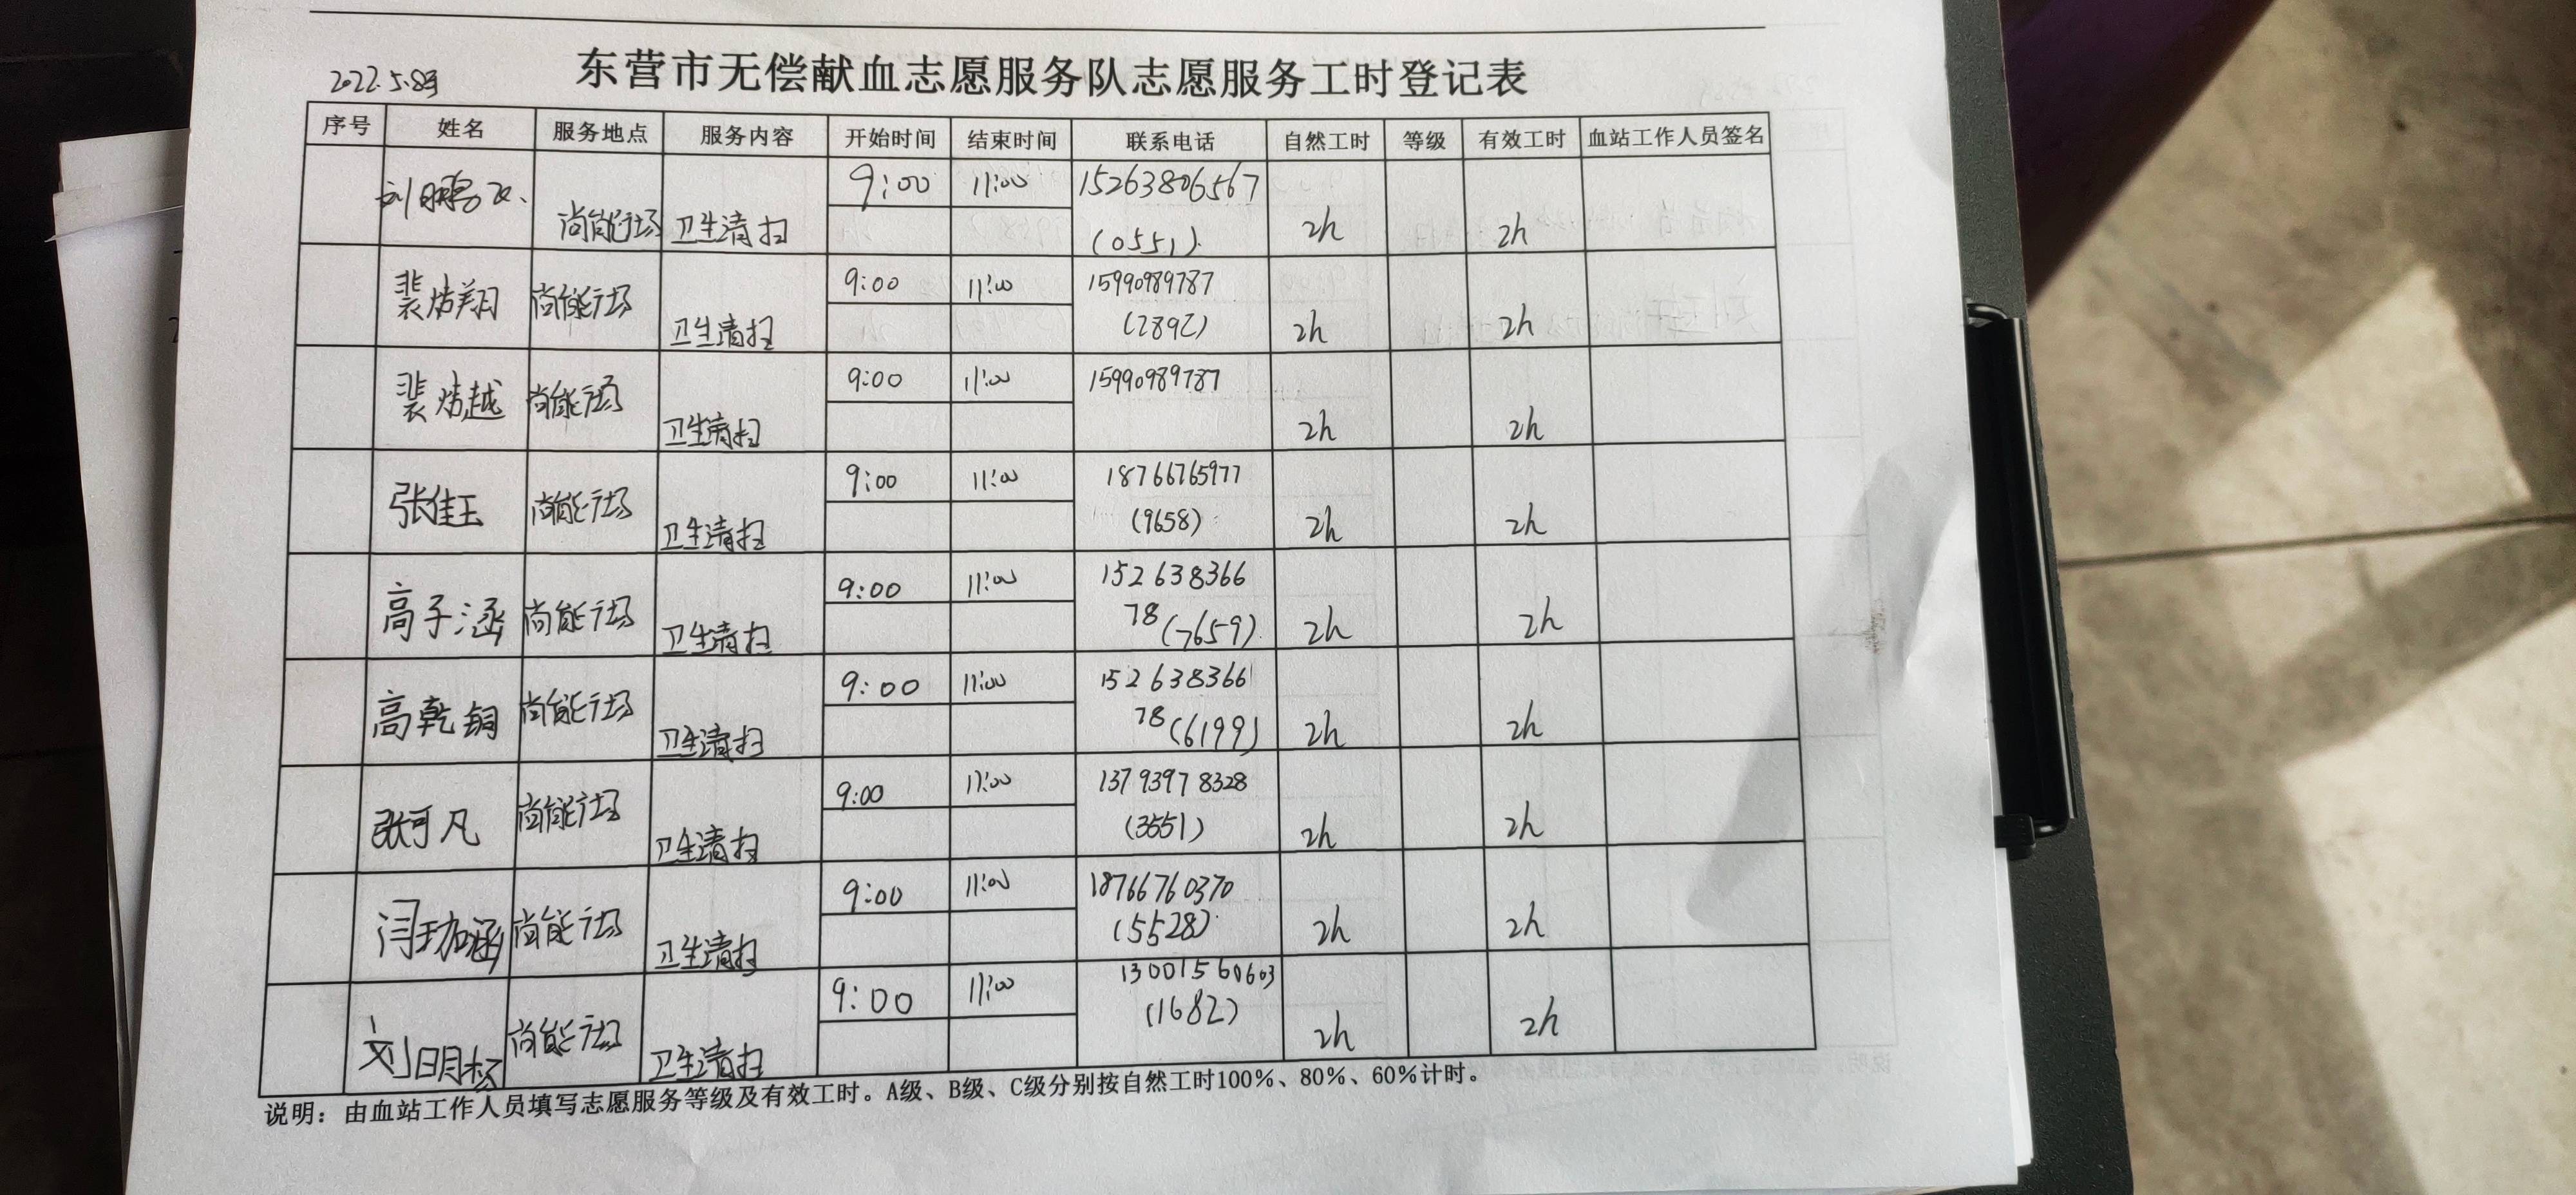 东营市无偿献血志愿服务队志愿服务工时登记表
2022.5.8号
序号 姓名 服务地点 服务内容 开始时间 结束时间 联系电话 自然工时 等级 有效工时 血站工作人员签名
刘 尚能广场 卫生清扫 9:00 11:00 15263806567
(0551) 2h 2h
裴炳翔 尚能广场 卫生清扫 9:00 11:00 15990989787
(2892) 2h 2h
裴炳越 尚能广场 卫生清扫 9:00 11:00 15990989787
2h 2h
张佳玉 尚能广场 卫生清扫 9:00 11:00 18766765977
(9658) 2h 2h
高子涵 尚能广场 卫生清扫 9:00 11:00 152638366
78(7659) 2h 2h
高乾铜 尚能广场 卫生清扫 9:00 11:00 152638366
78(6199) 2h 2h
张可凡 尚能广场 卫生清扫 9:00 11:00 13793978328
(3551) 2h 2h
闫珈涵 尚能广场 卫生清扫 9:00 11:00 18766760370
(5528) 2h 2h
刘明杉 尚能广场 卫生清扫 9:00 11:00 13001560603
(1682) 2h 2h
说明：由血站工作人员填写志愿服务等级及有效工时。A级、B级、C级分别按自然工时100%、80%、60%计时。